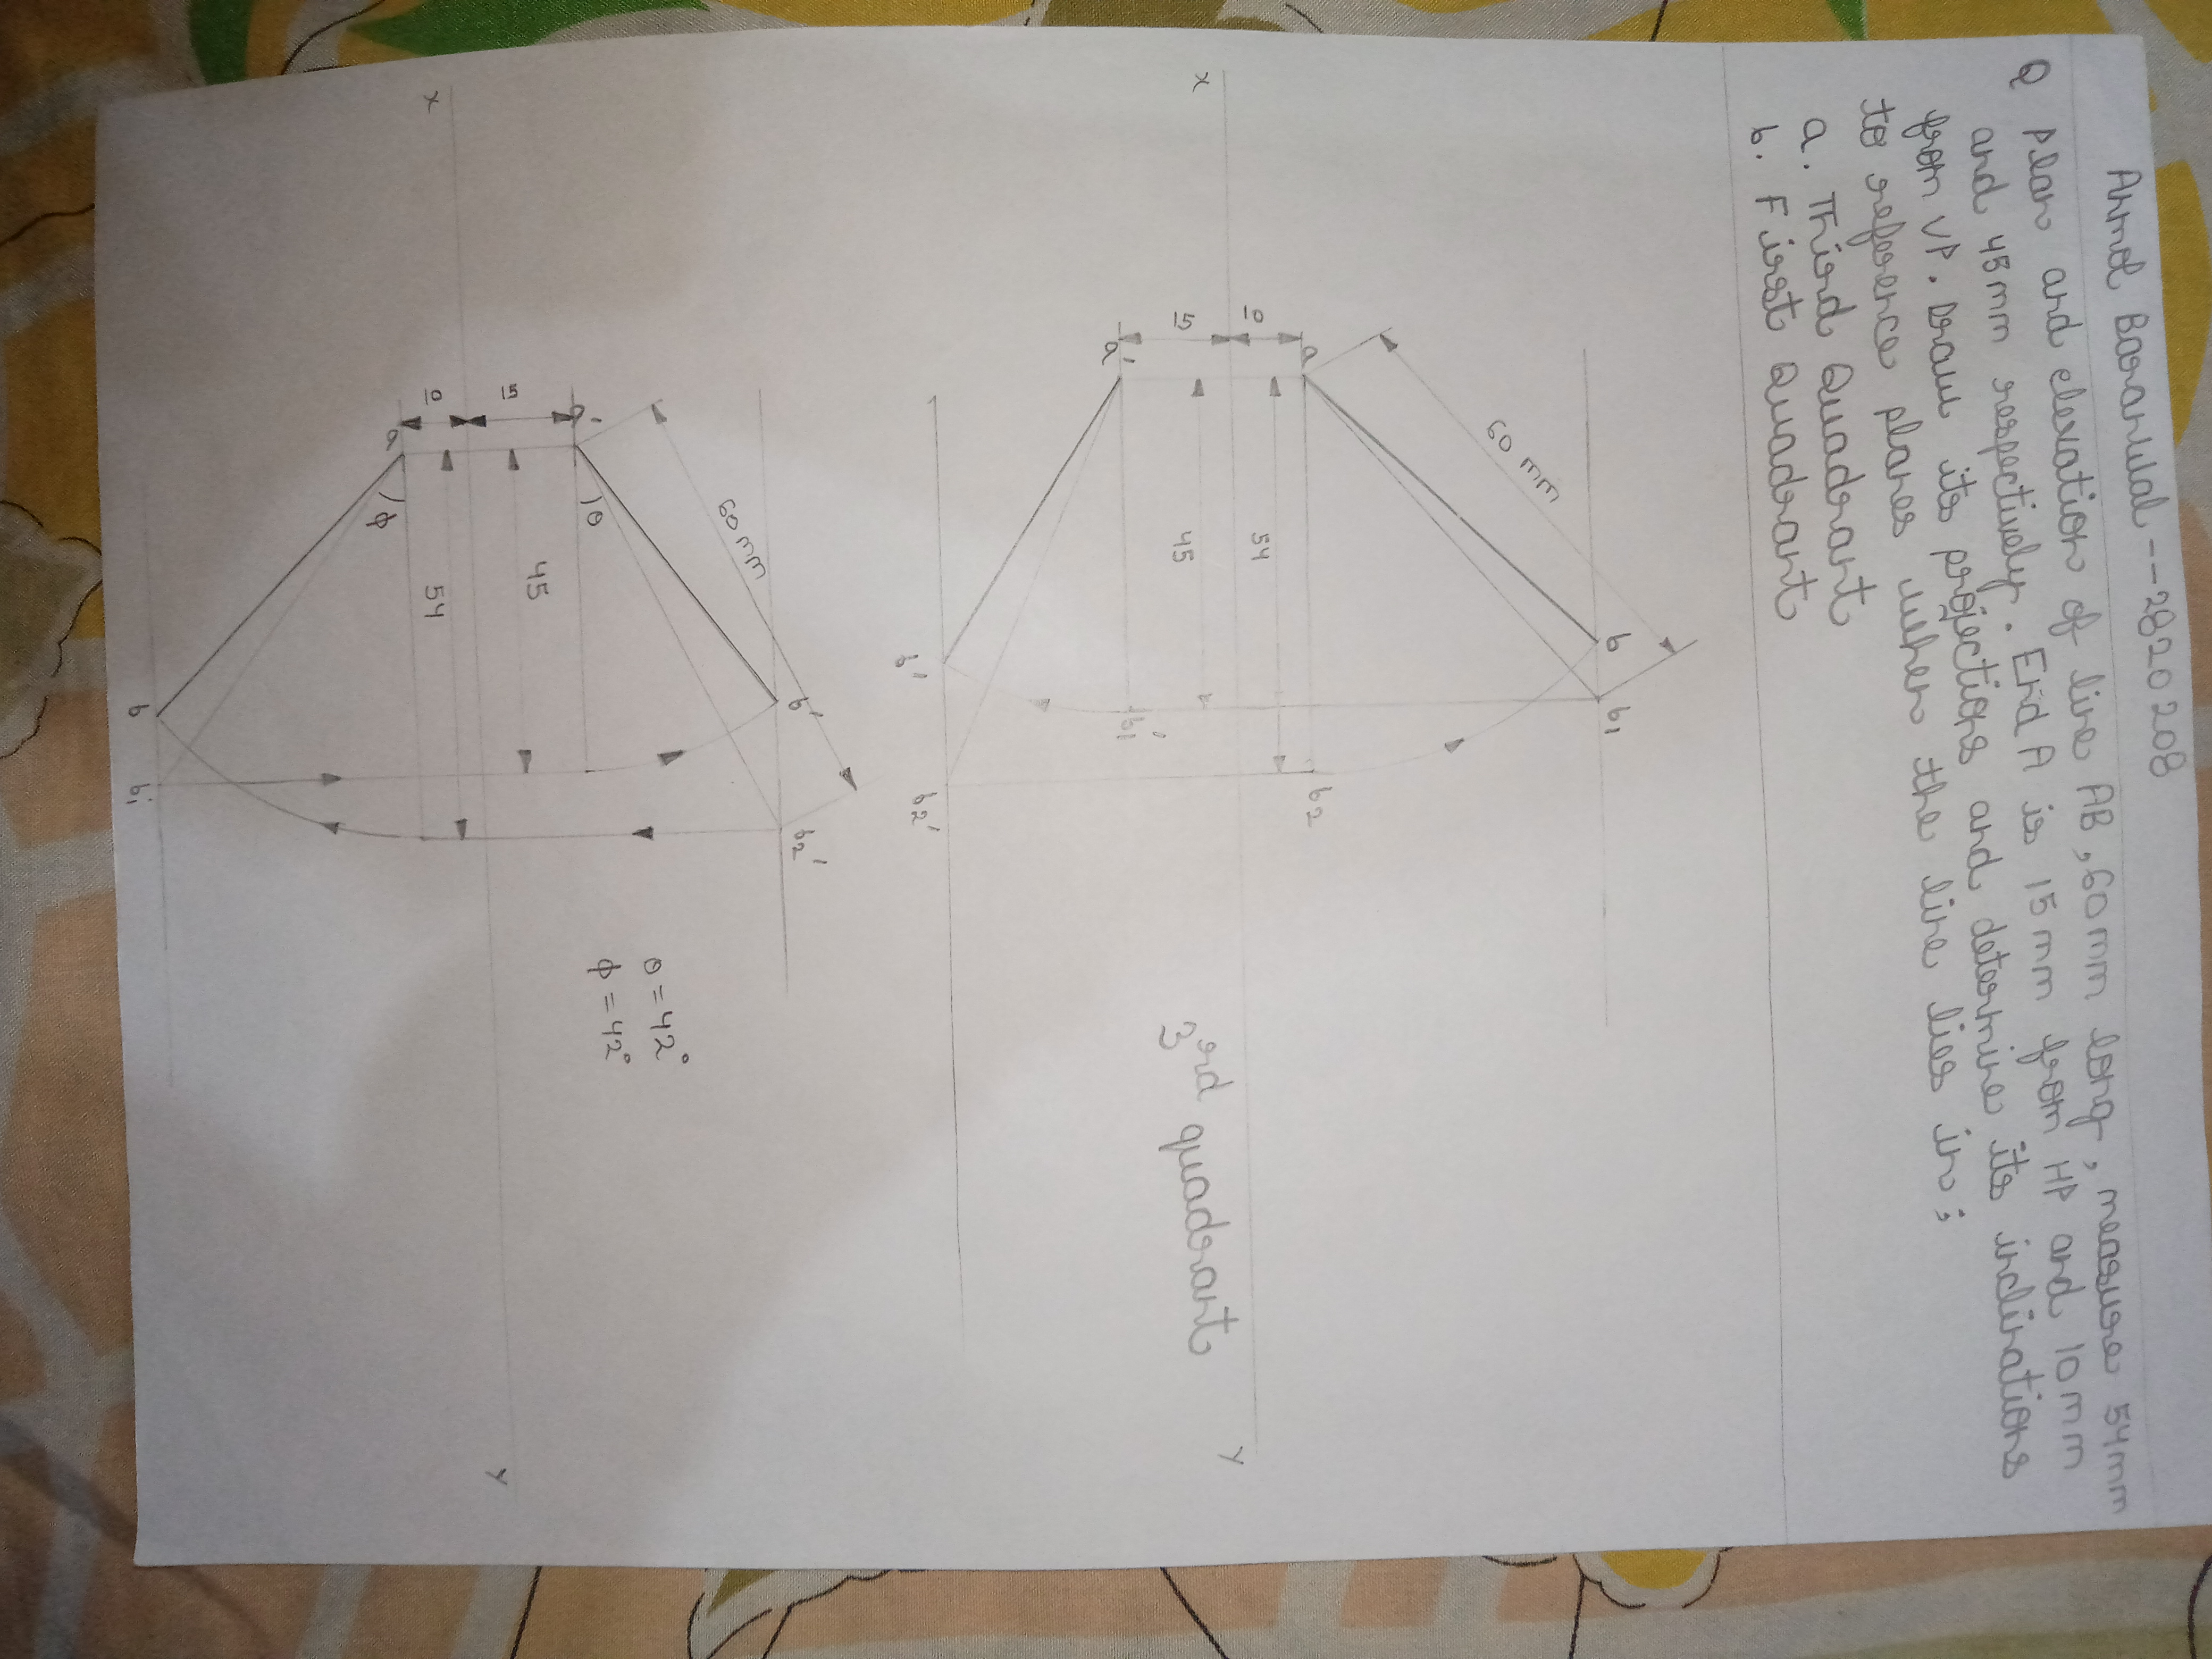 Anmol Baranwal--2820208
Q Plan and elevation of line AB, 60mm long, measure 54mm
and 45mm respectively. End A is 15mm from HP and 10mm
from VP. Draw its projections and determine its inclinations
to reference planes when the line lies in:
a. Third Quadrant
b. First Quadrant
60 mm
b
b1
a
10
54
b2
x
y
15
45
a'
b1'
3rd quadrant
b'
b2'
60 mm
b'
b2'
a'
θ
θ = 42°
15
45
φ = 42°
x
y
10
54
a
φ
b
b1